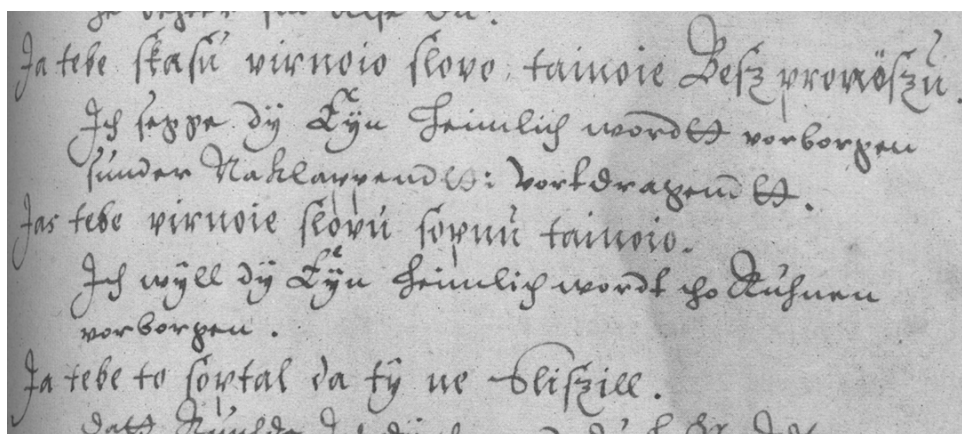 Ja tebe skasu virnoio slovo tainoie Besz pronöszu.
Ich segge dÿ Eÿn heimlich wordtt vorborgen
sunder Naklappendtt: Vortdragendtt.
Jas tebe virnoie slovu sopnu tainoio.
Ich wÿll dÿ Eÿn heimlich wordt tho Ruhnen
vorborgen.
Ja tebe to soptal da tÿ ne sliszill.
datt